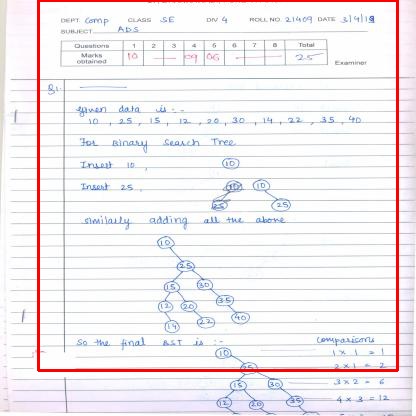 DEPT. Comp CLASS SE DIV 4 ROLL NO. 21409 DATE 3/4/19
SUBJECT ADS
Questions 1 2 3 4 5 6 7 8 Total
Marks obtained 10 09 06 25
Examiner
Q1.
Given data is :-
10 , 25 , 15 , 12 , 20 , 30 , 14 , 22 , 35 , 40
For Binary Search Tree
Insert 10 , 10
Insert 25 , 10 10
25 25
similarly adding all the above
10
25
15 30
12 20 35
14 22 40
So the final BST is :- comparisons
10 1 x 1 = 1
25 2 x 1 = 2
15 30 3 x 2 = 6
12 20 35 4 x 3 = 12